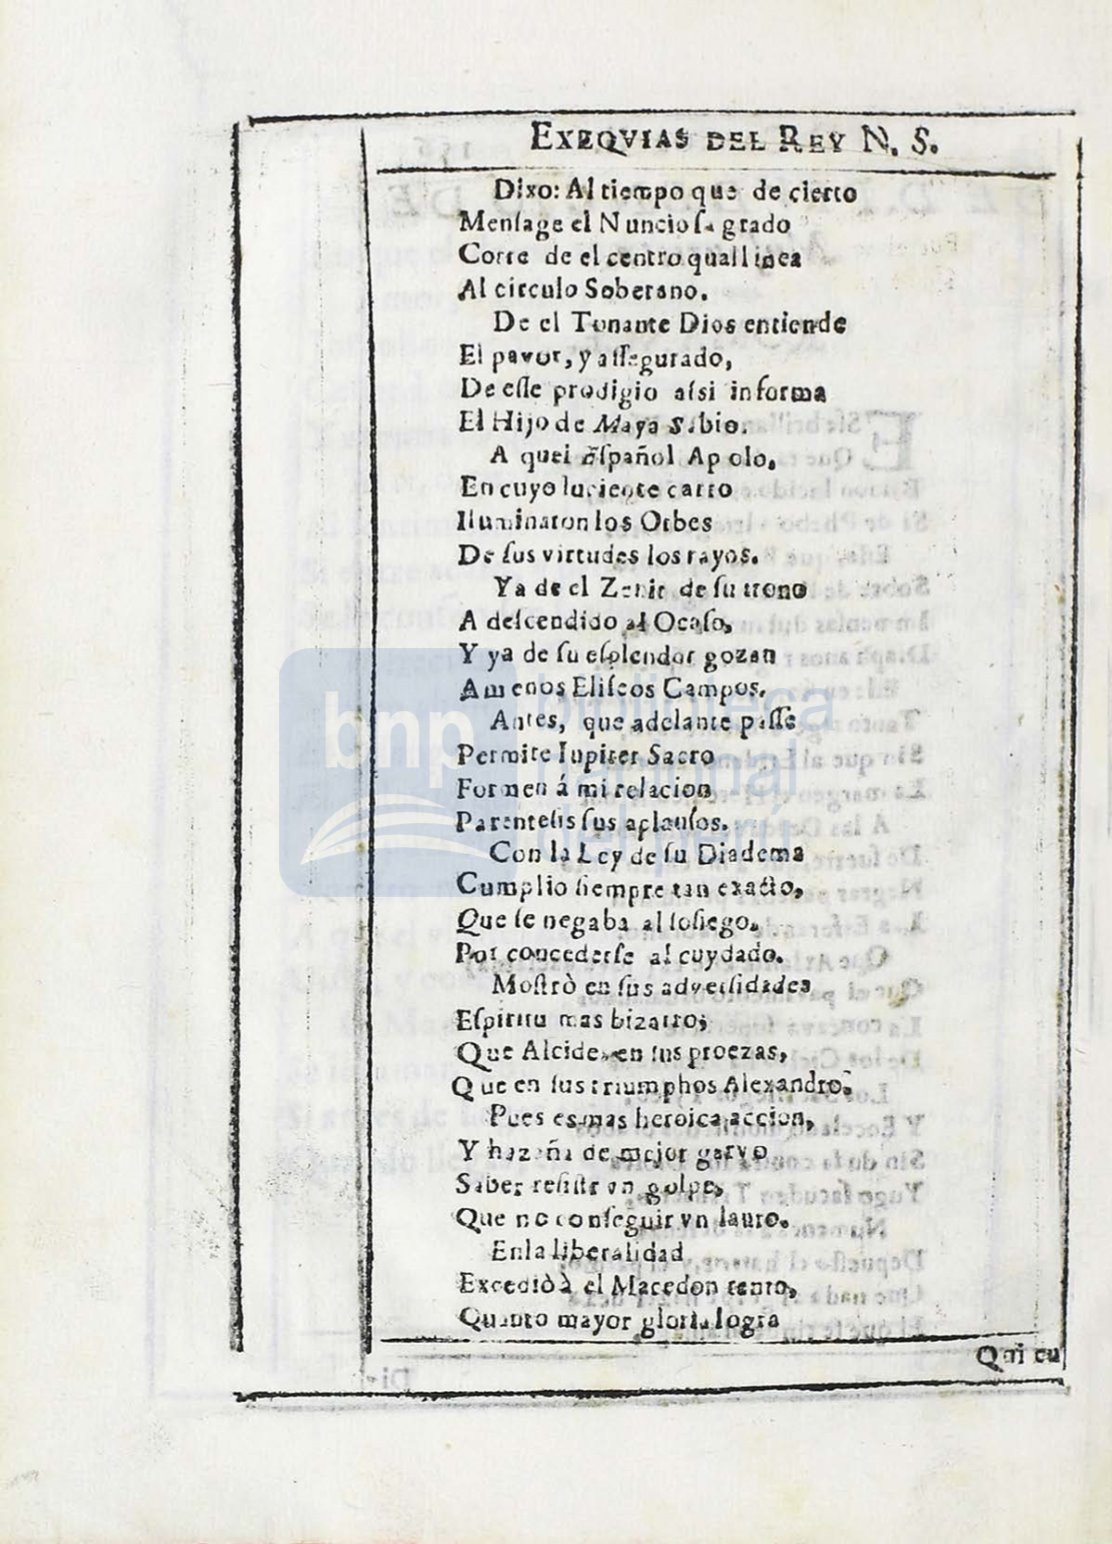 EXEQVIAS DEL REY N. S.
Dixo: Al tiempo que de cierto
Mensage el Nuncio sagrado
Corre de el centro qual linea
Al circulo Soberano.
De el Tonante Dios entiende
El pavor, y assegurado,
De esse prodigio assi informa
El Hijo de Maya Sabio.
A quel Español Apolo,
En cuyo luciente carro
Iluminaron los Orbes
De sus virtudes los rayos.
Ya de el Zenit de su trono
A descendido al Ocaso,
Y ya de su esplendor gozan
Amenos Eliseos Campos.
Antes, que adelante passe
Permite Iupiter Sacro
Formen á mi relacion
Parentesis sus aplausos.
Con la Ley de su Diadema
Cumplio siempre tan exacto,
Que se negaba al sosiego,
Por concederse al cuydado.
Mostrò en sus adversidades
Espiritu mas bizarro;
Que Alcides en sus proezas,
Que en sus triumphos Alexandro.
Pues es mas heroica accion,
Y hazaña de mejor garvo
Saber resistir vn golpe,
Que no conseguir vn lauro.
En la liberalidad
Excediò à el Macedon tanto,
Quanto mayor gloria logra
Qui en
bnp biblioteca
nacional
del perú